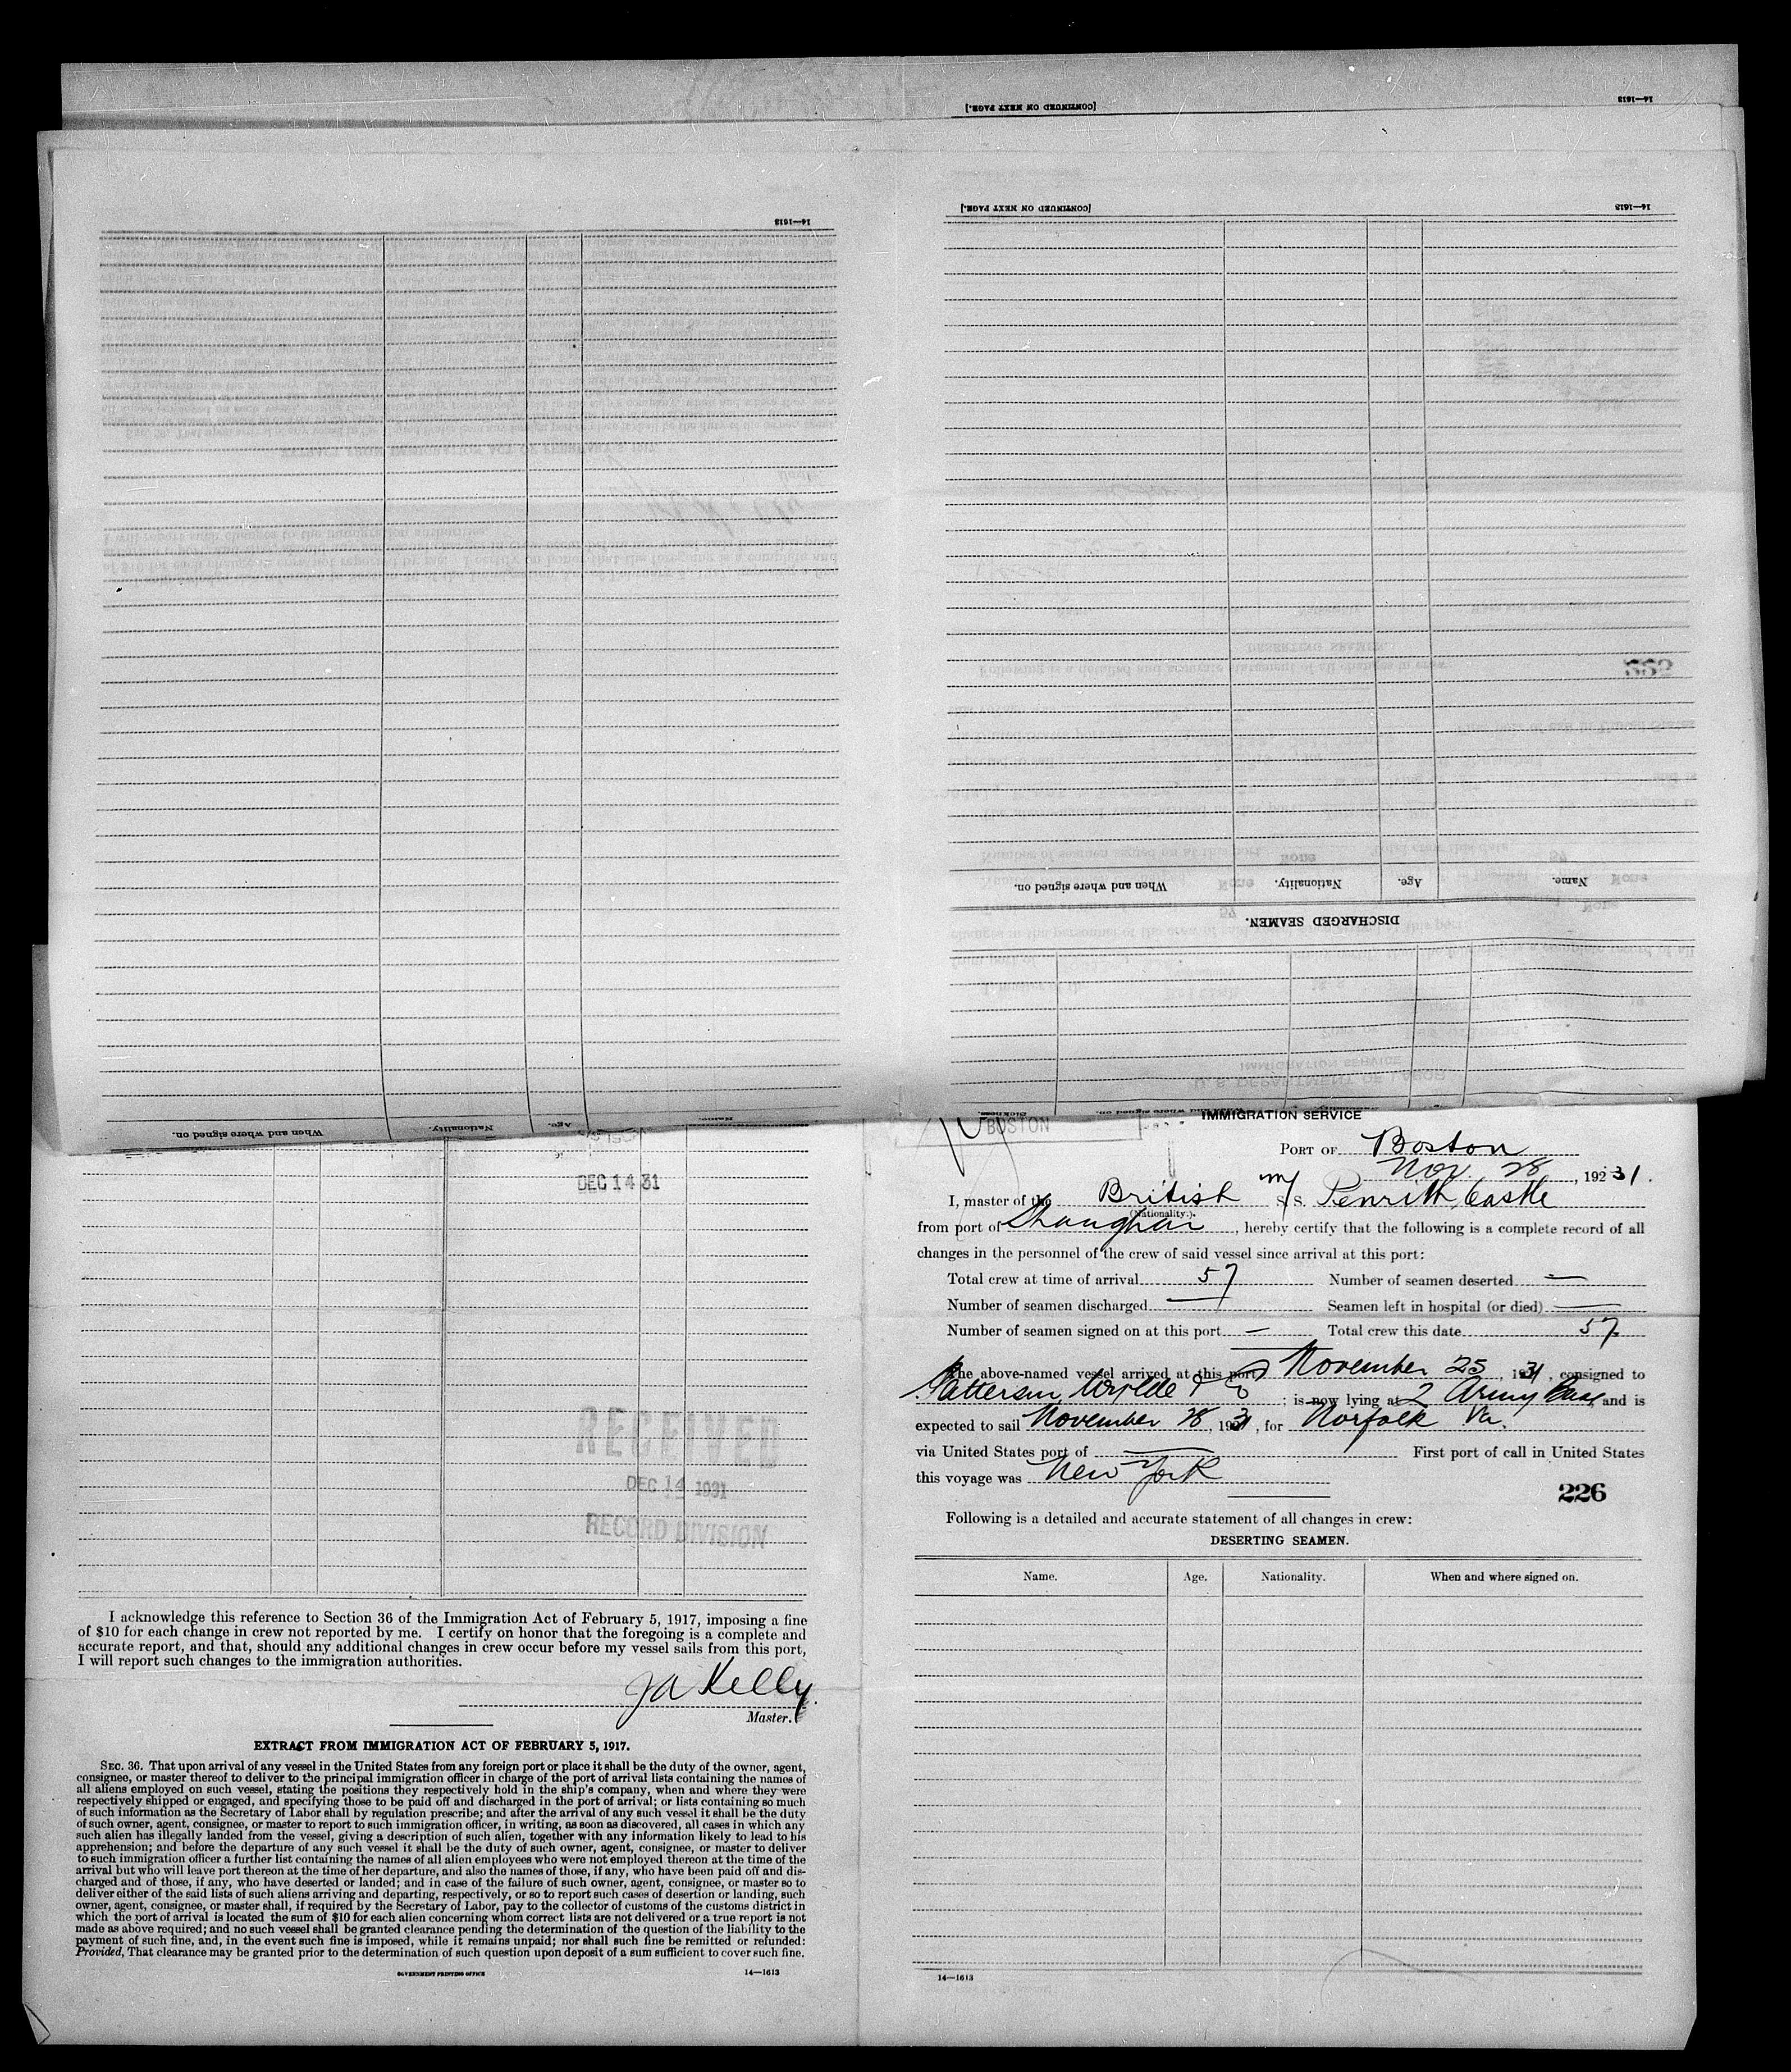 [CONTINUED ON NEXT PAGE.]
14—1613
14—1613
[CONTINUED ON NEXT PAGE.]
14—1613
Name.
Age.
Nationality.
When and where signed on.
DISCHARGED SEAMEN.
When and where signed on.
Nationality.
Age.
Name.
IMMIGRATION SERVICE
BOSTON
PORT OF Boston
Nov. 28, 192 31.
I, master of the British m/ S/S. Penrith Castle
(Nationality.)
from port of Shanghai, hereby certify that the following is a complete record of all
changes in the personnel of the crew of said vessel since arrival at this port:
Total crew at time of arrival 57 Number of seamen deserted —
Number of seamen discharged — Seamen left in hospital (or died) —
Number of seamen signed on at this port — Total crew this date 57
The above-named vessel arrived at this port November 25, 1931, consigned to
Patterson, Wylde & Co; is now lying at 2 Army Base, and is
expected to sail November 28, 1931, for Norfolk Va.
via United States port of — First port of call in United States
this voyage was New York
226
Following is a detailed and accurate statement of all changes in crew:
DESERTING SEAMEN.
Name. Age. Nationality. When and where signed on.
14—1613
DEC 14 31
RECEIVED
DEC 14 1931
RECORD DIVISION
I acknowledge this reference to Section 36 of the Immigration Act of February 5, 1917, imposing a fine
of $10 for each change in crew not reported by me. I certify on honor that the foregoing is a complete and
accurate report, and that, should any additional changes in crew occur before my vessel sails from this port,
I will report such changes to the immigration authorities.
JA Kelly
Master.
EXTRACT FROM IMMIGRATION ACT OF FEBRUARY 5, 1917.
SEC. 36. That upon arrival of any vessel in the United States from any foreign port or place it shall be the duty of the owner, agent,
consignee, or master thereof to deliver to the principal immigration officer in charge of the port of arrival lists containing the names of
all aliens employed on such vessel, stating the positions they respectively hold in the ship's company, when and where they were
respectively shipped or engaged, and specifying those to be paid off and discharged in the port of arrival; or lists containing so much
of such information as the Secretary of Labor shall by regulation prescribe; and after the arrival of any such vessel it shall be the duty
of such owner, agent, consignee, or master to report to such immigration officer, in writing, as soon as discovered, all cases in which any
such alien has illegally landed from the vessel, giving a description of such alien, together with any information likely to lead to his
apprehension; and before the departure of any such vessel it shall be the duty of such owner, agent, consignee, or master to deliver
to such immigration officer a further list containing the names of all alien employees who were not employed thereon at the time of the
arrival but who will leave port thereon at the time of her departure, and also the names of those, if any, who have been paid off and dis-
charged and of those, if any, who have deserted or landed; and in case of the failure of such owner, agent, consignee, or master so to
deliver either of the said lists of such aliens arriving and departing, respectively, or so to report such cases of desertion or landing, such
owner, agent, consignee, or master shall, if required by the Secretary of Labor, pay to the collector of customs of the customs district in
which the port of arrival is located the sum of $10 for each alien concerning whom correct lists are not delivered or a true report is not
made as above required; and no such vessel shall be granted clearance pending the determination of the question of the liability to the
payment of such fine, and, in the event such fine is imposed, while it remains unpaid; nor shall such fine be remitted or refunded:
Provided, That clearance may be granted prior to the determination of such question upon deposit of a sum sufficient to cover such fine.
GOVERNMENT PRINTING OFFICE
14—1613